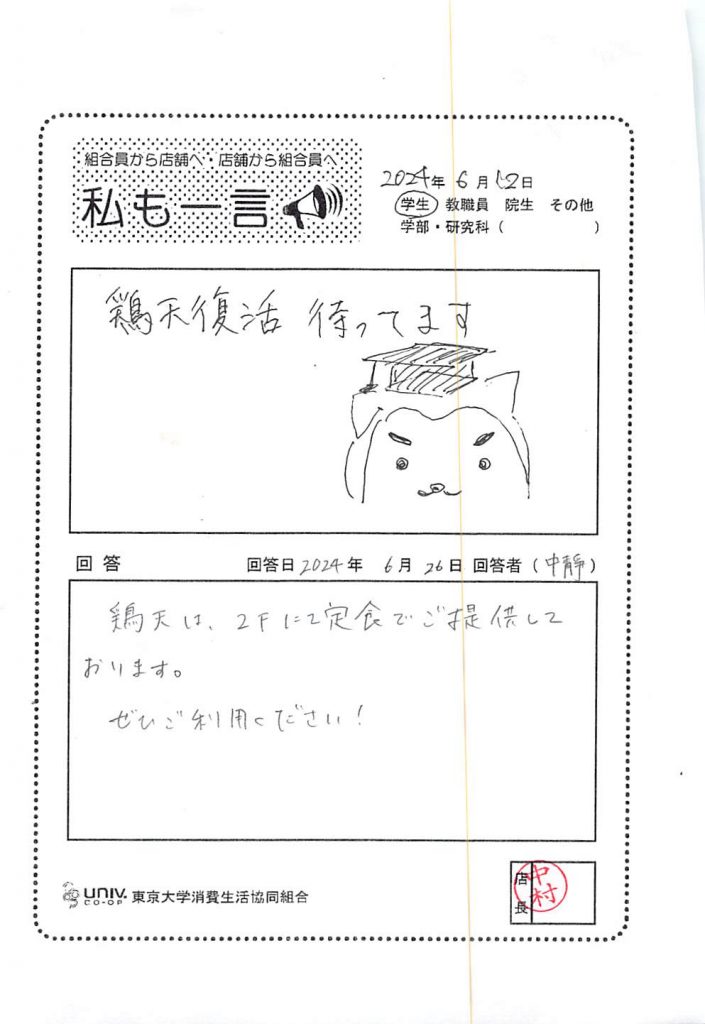 組合員から店舗へ・店舗から組合員へ
私も一言
2024年 6月12日
学生 教職員 院生 その他
学部・研究科（ ）
鶏天復活 待ってます
回答 回答日2024年 6月26日 回答者（中靜）
鶏天は、2Fにて定食でご提供して
おります。
ぜひご利用ください！
UNIV. CO-OP 東京大学消費生活協同組合
店長 中村